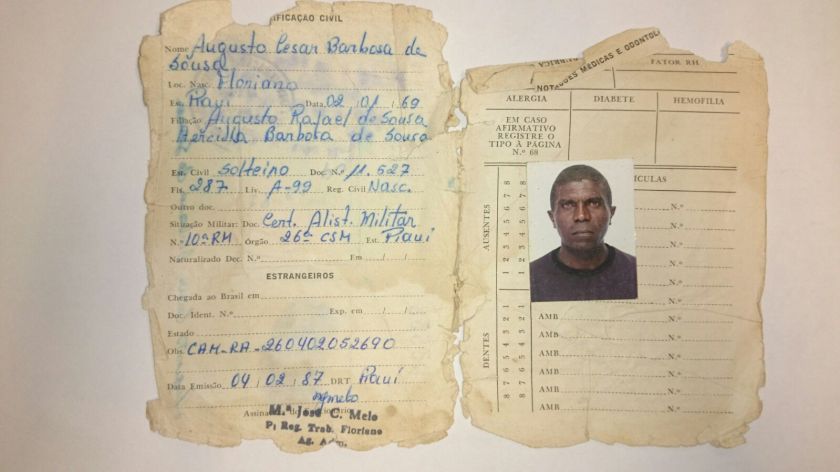 IFICAÇÃO CIVIL
Nome Augusto Cesar Barbosa de
Sousa
Loc. Nasc. Floriano
Est. Piauí Data 02 / 01 / 69
Filiação Augusto Rafael de Sousa
Hercilia Barbosa de Sousa
Est. Civil Solteiro Doc. Nº 11.627
Fls. 287 Liv. A-99 Reg. Civil Nasc.
Outro doc.
Situação Militar: Doc. Cert. Alist. Militar
N.º 10ª RM Órgão 26ª CSM Est. Piauí
Naturalizado Doc. N.º Em / /
ESTRANGEIROS
Chegada ao Brasil em
Doc. Ident. N.º Exp. em / /
Estado
Obs. CAM-RA-260402052690
Data Emissão 04 / 02 / 87 DRT Piauí
Assina
M.ª José C. Melo
P/ Reg. Trab. Floriano
Ag. Adm.
NOTAÇÕES MÉDICAS E ODONTOL
FATOR RH.
ALERGIA DIABETE HEMOFILIA
EM CASO
AFIRMATIVO
REGISTRE O
TIPO À PÁGINA
N.º 68
ÍCULAS
AUSENTES
1 2 3 4 5 6 7 8
1 2 3 4 5 6 7 8
N.º
N.º
N.º
N.º
N.º
DENTES
8 7 6 5 4 3 2 1
8 7 6 5 4 3 2 1
AMB N.º
AMB. N.º
AMB. N.º
AMB. N.º
AMB. N.º
AMB. N.º